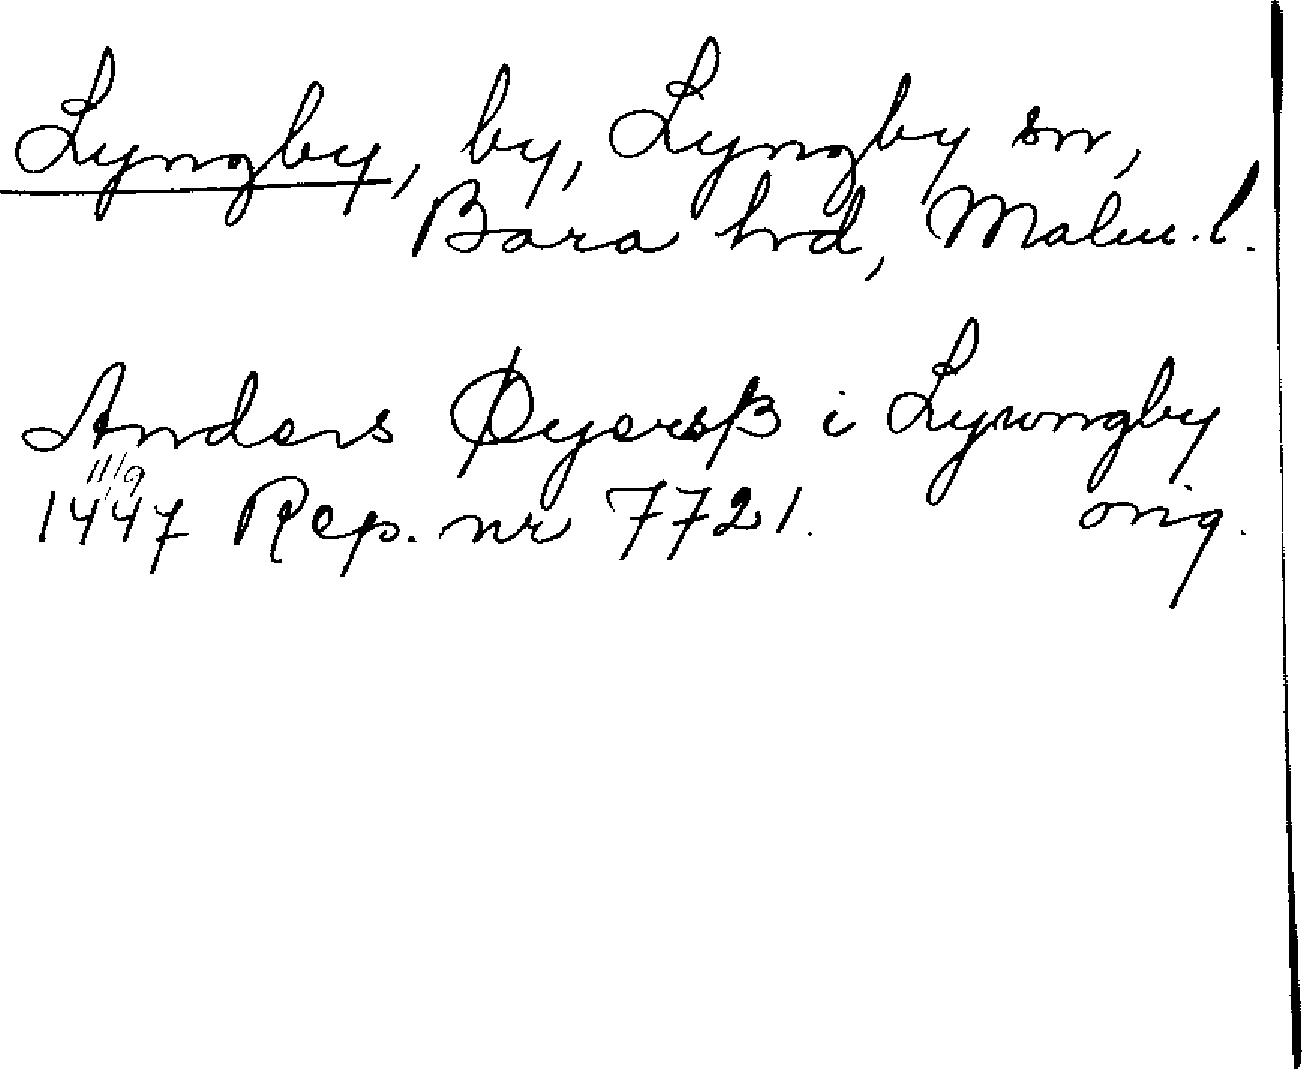 Lyngby, by, Lyngby sn,
Bara hd, Malm. l.
Anders Øyersß i Lywngby
11/9
1447 Rep. nr 7721. orig.